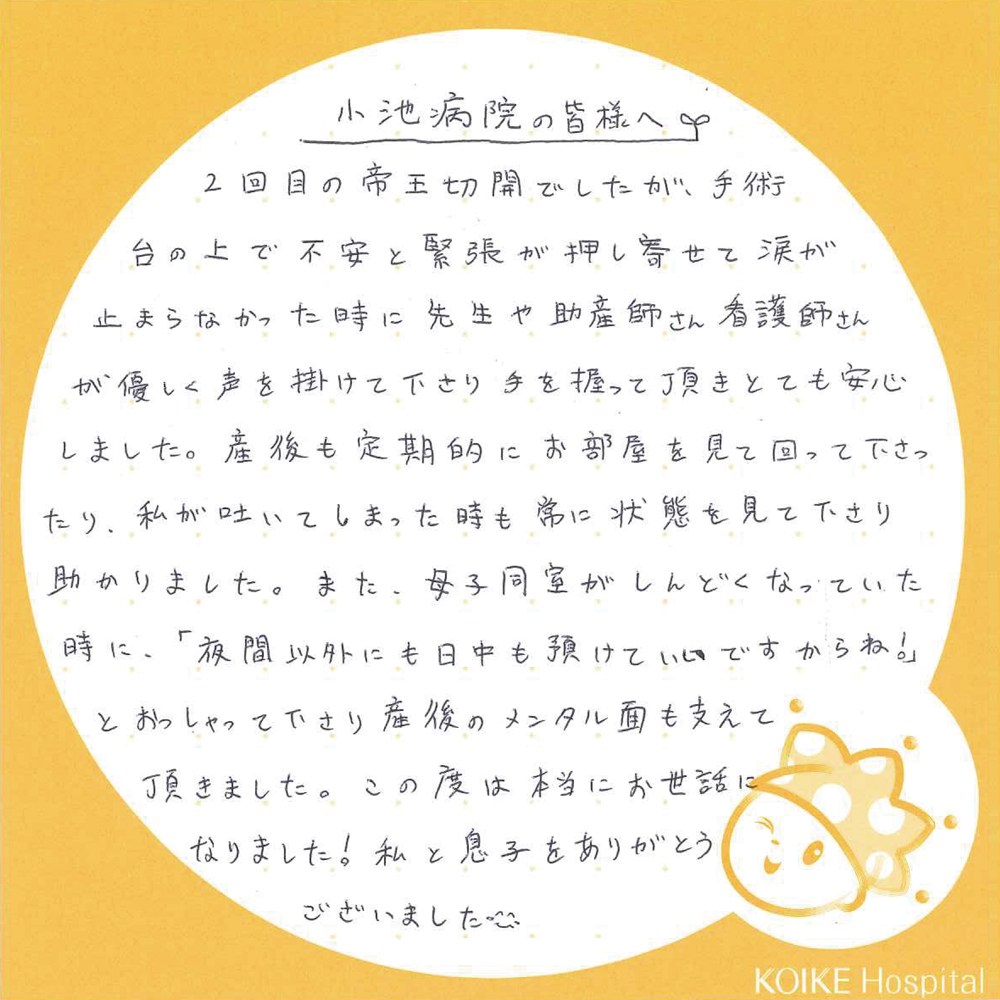 小池病院の皆様へ
2回目の帝王切開でしたが、手術
台の上で不安と緊張が押し寄せて涙が
止まらなかった時に先生や助産師さん看護師さん
が優しく声を掛けて下さり手を握って頂きとても安心
しました。産後も定期的にお部屋を見て回って下さっ
たり、私が吐いてしまった時も常に状態を見て下さり
助かりました。また、母子同室がしんどくなっていた
時に、「夜間以外にも日中も預けていいですからね!」
とおっしゃって下さり産後のメンタル面も支えて
頂きました。この度は本当にお世話に
なりました!私と息子をありがとう
ございました
KOIKE Hospital